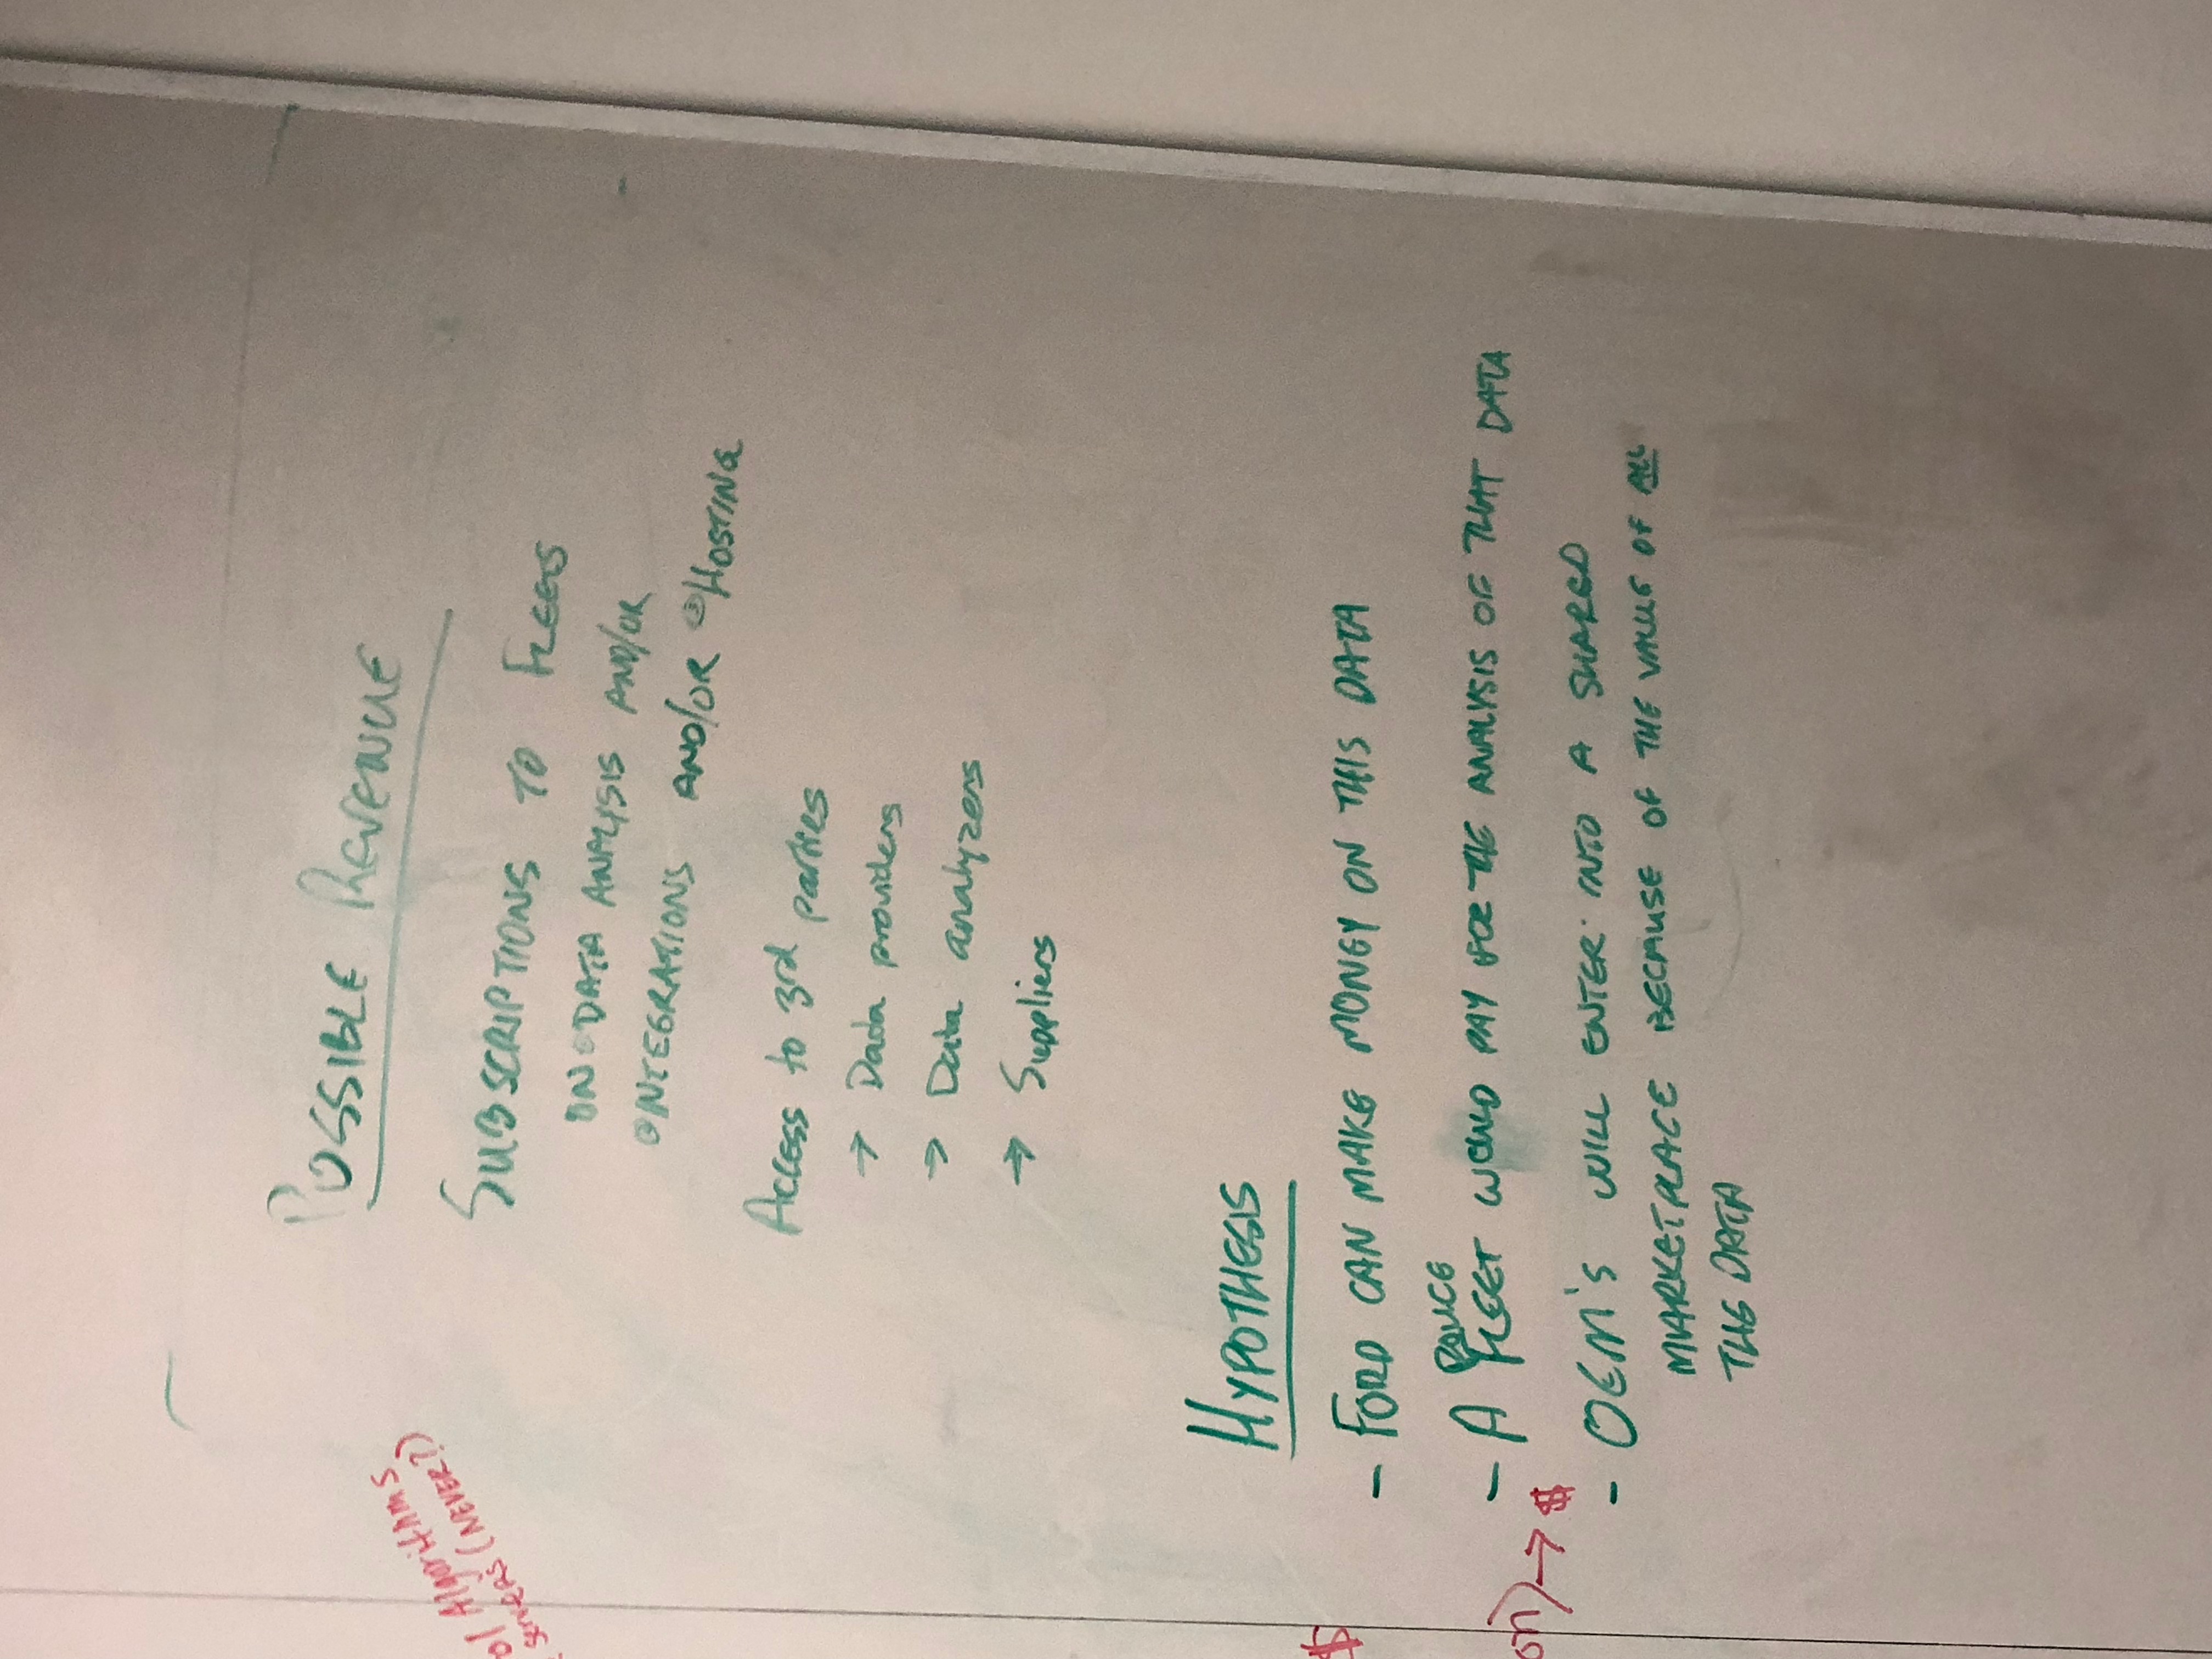 POSSIBLE REVENUE
SUBSCRIPTIONS TO FLEETS
ON ① DATA ANALYSIS AND/OR
② INTEGRATIONS AND/OR ③ HOSTING
Access to 3rd parties
→ Data providers
→ Data analyzers
→ Suppliers
Algorithms
servers (NEVER?)
HYPOTHESIS
$
- FORD CAN MAKE MONEY ON THIS DATA
POLICE
- A FLEET WOULD PAY FOR THE ANALYSIS OF THAT DATA
→ $
- OEM'S WILL ENTER INTO A SHARED
MARKETPLACE BECAUSE OF THE VALUE OF ALL
THE DATA